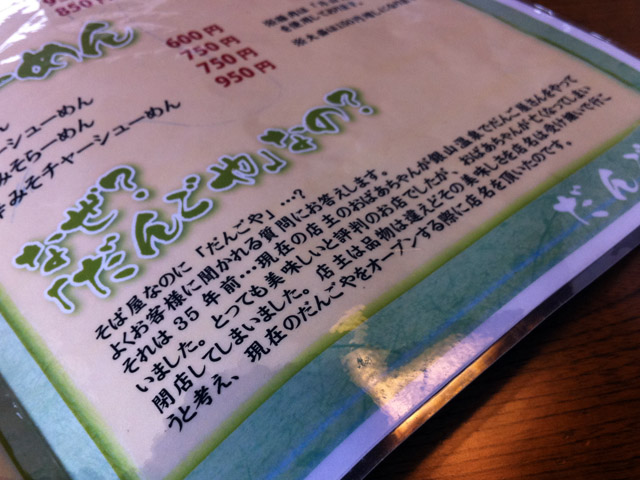 850円
ーめん
600円
750円
750円
950円
ーシューめん
みそらーめん
みそチャーシューめん
なぜ?
「だんごや」なの?
そば屋なのに「だんごや」…?
よくお客様に聞かれる質問にお答えします。
それは35年前…現在の店主のおばあちゃんが銀山温泉でだんご屋さんをやって
いました。とっても美味しいと評判のお店でしたが、おばあちゃんが亡くなってしまい
閉店してしまいました。店主は品物は違えどその美味しさを店名は受け継いで行こ
うと考え、現在のだんごやをオープンする際に店名を頂いたのです。
だん